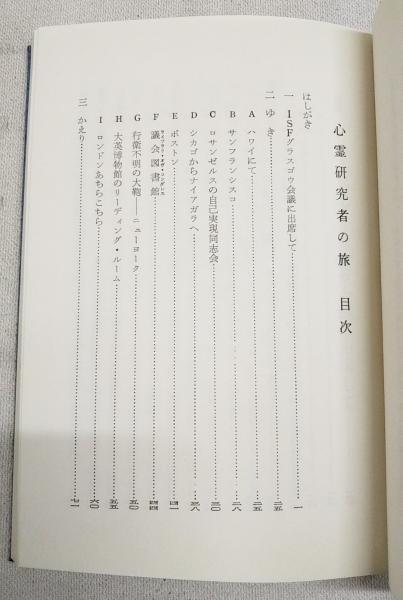 心霊研究者の旅 目次
はしがき
一 ISFグラスゴウ会議に出席して……一
二 ゆき……二五
A ハワイにて……二五
B サンフランシスコ……二八
C ロサンゼルスの自己実現同志会……三〇
D シカゴからナイアガラへ……三八
E ボストン……四一
F 議会図書館……四四
G 行衛不明の大鞄――ニューヨーク……
H 大英博物館のリーディング・ルーム……五五
I ロンドンあちらこちら……六〇
三 かえり……七一